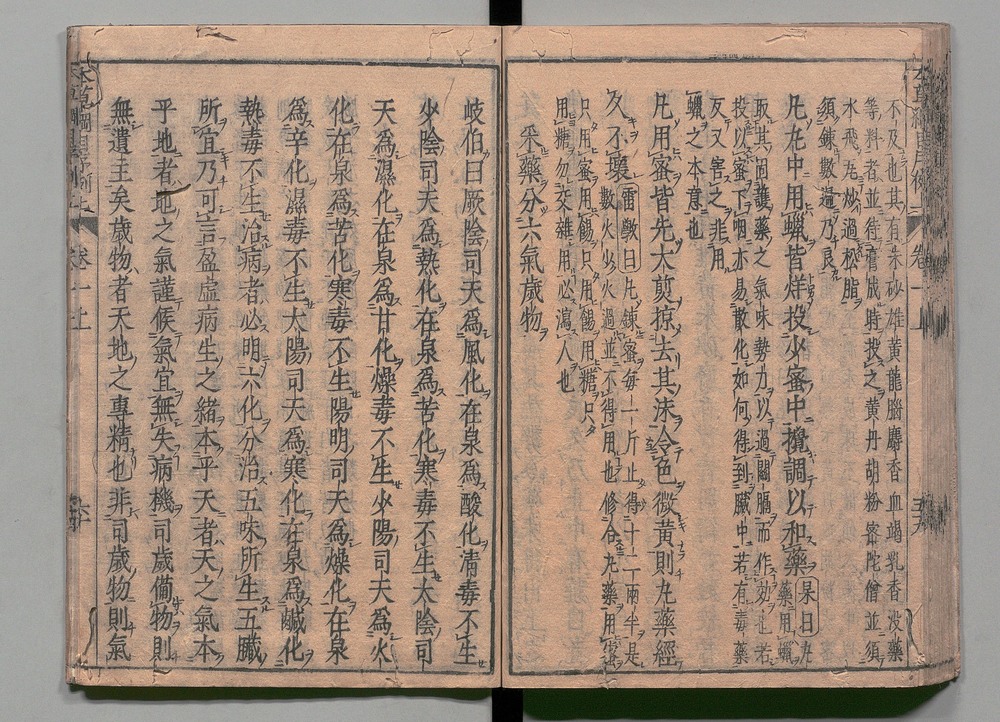 不及也其有朱砂雄黃龍腦麝香血竭乳香沒藥
等料者並待膏成時投之黃丹胡粉密陀僧並須
水飛瓦炒過松脂
須鍊數過乃良
凡丸中用蠟皆烊投少蜜中攪調以和藥 杲曰丸藥用蠟
取其固護藥之氣味勢力以過關膈而作效也若
投以蜜下咽亦易散化如何得到臟中若有毒藥
反又害之非用
蠟之本意也
凡用蜜皆先火煎掠去其沫令色微黃則丸藥經
久不壞 雷斆曰凡鍊蜜每一斤止得十二兩半是
數火少火過並不得用也修合丸藥用蜜
只用蜜用餳只用餳用糖只
用糖勿交雜用必瀉人也
采藥分六氣歲物
岐伯曰厥陰司天爲風化在泉爲酸化清毒不生
少陰司天爲熱化在泉爲苦化寒毒不生太陰司
天爲濕化在泉爲甘化燥毒不生少陽司天爲火
化在泉爲苦化寒毒不生陽明司天爲燥化在泉
爲辛化濕毒不生太陽司天爲寒化在泉爲鹹化
熱毒不生治病者必明六化分治五味所生五臟
所宜乃可言盈虛病生之緒本乎天者天之氣本
乎地者地之氣謹候氣宜無失病機司歲備物則
無遺主矣歲物者天地之專精也非司歲物則氣